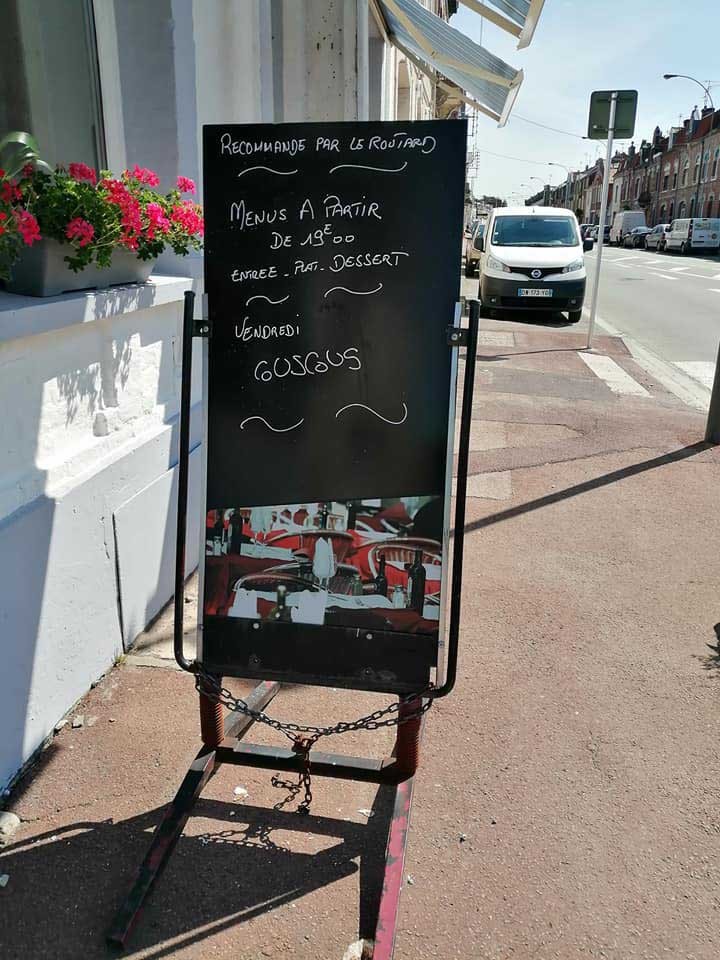 RECOMMANDE PAR LE ROUTARD
MENUS A PARTIR
DE 19€00
ENTREE - PLAT - DESSERT
VENDREDI
COUSCOUS
DW-173-YG